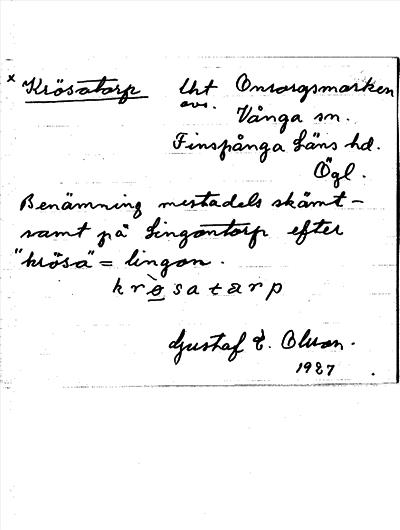 x Krösatorp lht Onsorgsmarken
avs. Vånga sn.
Finspånga läns hd.
Ögl.
Benämning mestadels skämt-
samt på Lingontorp efter
"krösa" = lingon.
krösatarp
Gustaf E. Olsson.
1927